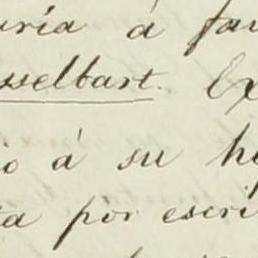 uria á fav
sselbart. Ex
io á su h
ta por escri